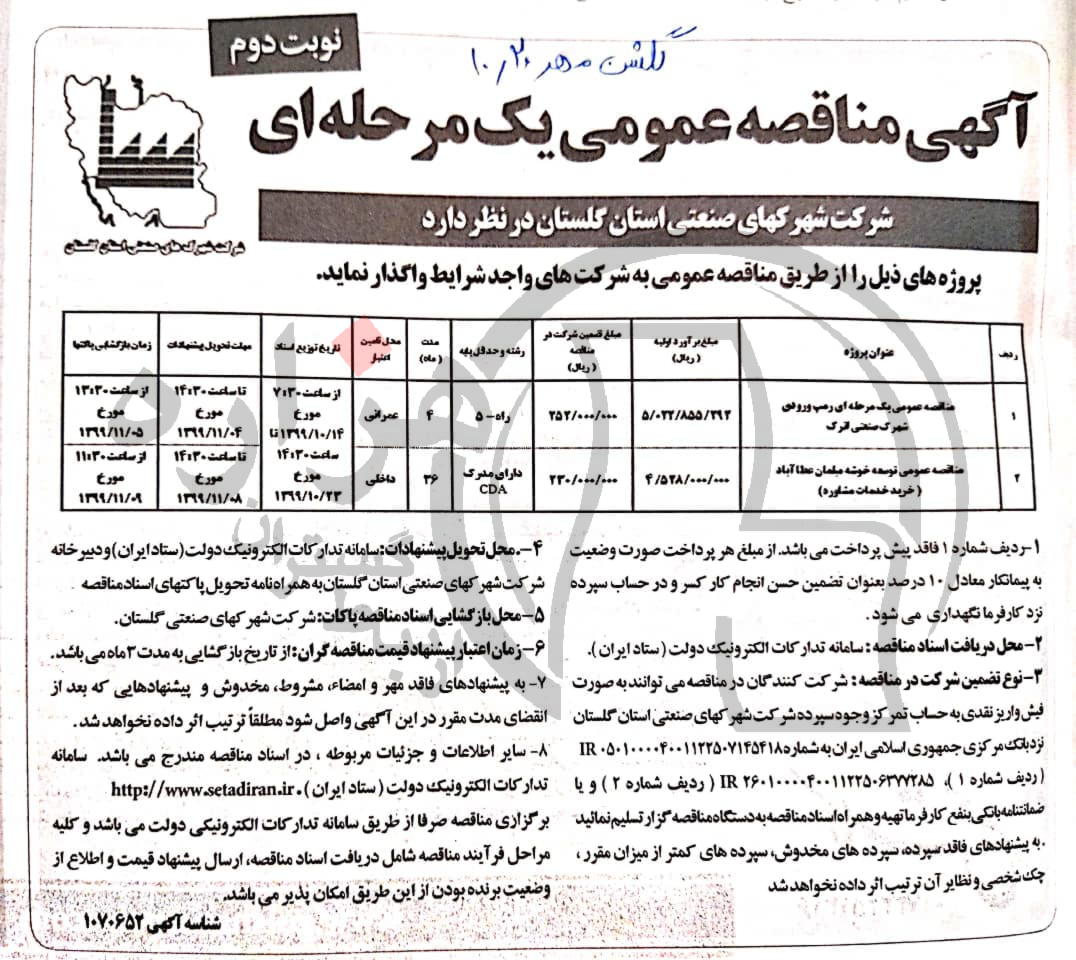 نوبت دوم
گلشن مهر ۱۰٫۲۰
آگهی مناقصه عمومی یک مرحله ای
شرکت شهرکهای صنعتی استان گلستان در نظر دارد
شرکت شهرک های صنعتی استان گلستان
پروژه های ذیل را از طریق مناقصه عمومی به شرکت های واجد شرایط واگذار نماید.
ردیف عنوان پروژه مبلغ برآورد اولیه (ریال) مبلغ تضمین شرکت در مناقصه (ریال) رشته و حداقل پایه مدت (ماه) محل تامین اعتبار تاریخ توزیع اسناد مهلت تحویل پیشنهادات زمان بازگشایی پاکتها
۱ مناقصه عمومی یک مرحله ای رمپ ورودی شهرک صنعتی اترک ۵/۰۳۲/۸۵۵/۲۹۲ ۲۵۲/۰۰۰/۰۰۰ راه - ۵ ۴ عمرانی از ساعت ۷:۳۰ مورخ ۱۳۹۹/۱۰/۱۴ تا تا ساعت ۱۴:۳۰ مورخ ۱۳۹۹/۱۱/۰۴ از ساعت ۱۳:۳۰ مورخ ۱۳۹۹/۱۱/۰۵
۲ مناقصه عمومی توسعه خوشه مبلمان عطا آباد (خرید خدمات مشاوره) ۴/۵۲۸/۰۰۰/۰۰۰ ۲۳۰/۰۰۰/۰۰۰ دارای مدرک CDA ۳۶ داخلی ساعت ۱۴:۳۰ مورخ ۱۳۹۹/۱۰/۲۳ تا ساعت ۱۴:۳۰ مورخ ۱۳۹۹/۱۱/۰۸ از ساعت ۱۱:۳۰ مورخ ۱۳۹۹/۱۱/۰۹
۱-ردیف شماره ۱ فاقد پیش پرداخت می باشد. از مبلغ هر پرداخت صورت وضعیت
به پیمانکار معادل ۱۰ درصد بعنوان تضمین حسن انجام کار کسر و در حساب سپرده
نزد کارفرما نگهداری می شود.
۲-محل دریافت اسناد مناقصه : سامانه تدارکات الکترونیک دولت ( ستاد ایران ).
۳-نوع تضمین شرکت در مناقصه : شرکت کنندگان در مناقصه می توانند به صورت
فیش واریز نقدی به حساب تمرکز وجوه سپرده شرکت شهرکهای صنعتی استان گلستان
نزد بانک مرکزی جمهوری اسلامی ایران به شماره IR ۰۵۰۱۰۰۰۰۴۰۰۱۱۲۲۵۰۷۱۴۵۴۱۸
( ردیف شماره ۱ )، IR ۲۶۰۱۰۰۰۰۴۰۰۱۱۲۲۵۰۶۳۷۷۲۸۵ ( ردیف شماره ۲ ) و یا
ضمانتنامه بانکی بنفع کارفرما تهیه و همراه اسناد مناقصه به دستگاه مناقصه گزار تسلیم نمائید
.به پیشنهادهای فاقد سپرده، سپرده های مخدوش، سپرده های کمتر از میزان مقرر ،
چک شخصی و نظایر آن ترتیب اثر داده نخواهد شد
۴-.محل تحویل پیشنهادات: سامانه تدارکات الکترونیک دولت (ستاد ایران) و دبیرخانه
شرکت شهرکهای صنعتی استان گلستان به همراه نامه تحویل پاکتهای اسناد مناقصه
۵-محل بازگشایی اسناد مناقصه پاکات: شرکت شهرکهای صنعتی گلستان.
۶-زمان اعتبار پیشنهاد قیمت مناقصه گران: از تاریخ بازگشایی به مدت ۳ ماه می باشد.
۷- به پیشنهادهای فاقد مهر و امضاء، مشروط، مخدوش و پیشنهادهایی که بعد از
انقضای مدت مقرر در این آگهی واصل شود مطلقاً ترتیب اثر داده نخواهد شد.
۸- سایر اطلاعات و جزئیات مربوطه ، در اسناد مناقصه مندرج می باشد. سامانه
تدارکات الکترونیک دولت ( ستاد ایران ). http://www.setadiran.ir
برگزاری مناقصه صرفا از طریق سامانه تدارکات الکترونیکی دولت می باشد و کلیه
مراحل فرآیند مناقصه شامل دریافت اسناد مناقصه، ارسال پیشنهاد قیمت و اطلاع از
وضعیت برنده بودن از این طریق امکان پذیر می باشد.
شناسه آگهی ۱۰۷۰۶۵۲
هزاره